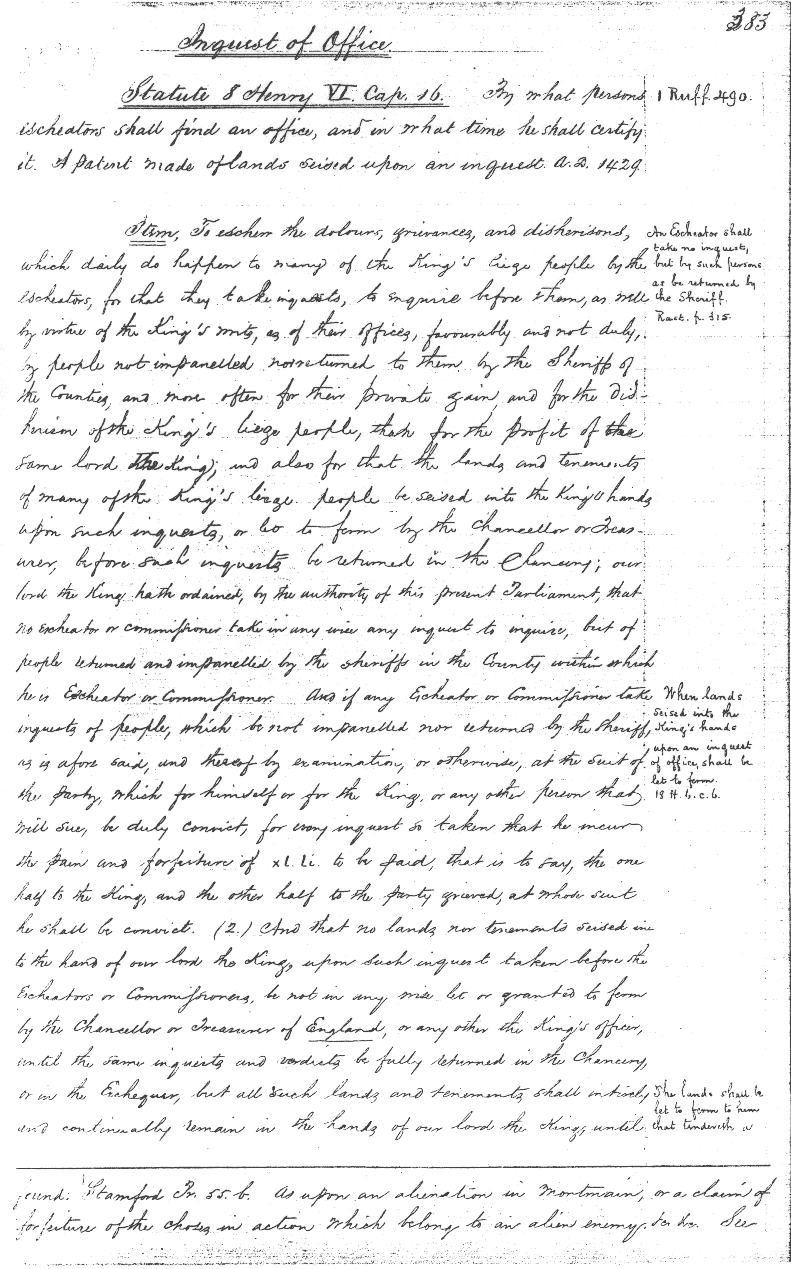 383
Inquest of Office.
Statute 8 Henry VI. Cap. 16. By what persons
escheators shall find an office, and in what time he shall certify
it. A patent made of lands seised upon an inquest. A.D. 1429
1 Ruff. 490.
Item, To eschew the dolours, grievances, and disherisons,
which daily do happen to many of the King's liege people by the
escheators, for that they take inquests, to enquire before them, as well
by virtue of the King's writs, as of their offices, favourably and not duly,
by people not impanelled nor returned to them by the Sheriffs of
the Counties, and more often for their private gain, and for the dis-
herison of the King's liege people, than for the profit of the
same lord the King; and also for that the lands and tenements
of many of the King's liege people be seised into the King's hands
upon such inquests, or let to ferm by the Chancellor or Treas-
urer, before such inquests be returned in the Chancery; our
lord the King hath ordained, by the authority of this present Parliament, that
no escheator or commissioner take in any wise any inquest to inquire, but of
people returned and impanelled by the sheriffs in the County within which
he is Escheator or Commissioner. And if any Escheator or Commissioner take
inquests of people, which be not impanelled nor returned by the Sheriff,
as is afore said, and thereof by examination, or otherwise, at the suit of
the party, which for himself or for the King, or any other person that
will sue, be duly convict, for every inquest so taken that he incur
the pain and forfeiture of xl. li. to be paid, that is to say, the one
half to the King, and the other half to the party grieved, at whose suit
he shall be convict. (2.) And that no lands nor tenements seised in
to the hand of our lord the King, upon such inquest taken before the
Escheators or Commissioners, be not in any wise let or granted to ferm
by the Chancellor or Treasurer of England, or any other the King's officer,
until the same inquests and verdicts be fully returned in the Chancery,
or in the Exchequer, but all such lands and tenements shall intirely
and continually remain in the hands of our lord the King, until
An Escheator shall
take no inquest,
but by such persons
as be returned by
the Sheriff.
Rast. p. 315.
When lands
seised into the
King's hands
upon an inquest
of office, shall be
let to ferm.
18 H. 6. c. 6.
The lands shall be
let to ferm to him
that tendereth a
found: Stamford Pr. 55. b. As upon an alienation in mortmain, or a claim of
forfeiture of the choses in action which belong to an alien enemy. &c. &c. See